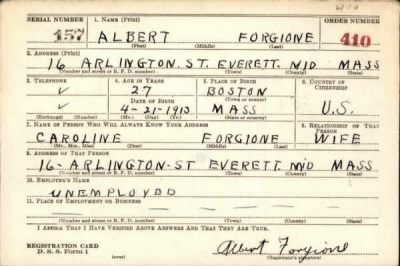 410
SERIAL NUMBER 1. NAME (Print) ORDER NUMBER
157 ALBERT FORGIONE 410
(First) (Middle) (Last)
2. ADDRESS (Print)
16 ARLINGTON. ST. EVERETT. MID MASS
(Number and street or R. F. D. number) (Town) (County) (State)
3. TELEPHONE 4. AGE IN YEARS 5. PLACE OF BIRTH 6. COUNTRY OF CITIZENSHIP
✓ 27 BOSTON
DATE OF BIRTH (Town or county)
✓ 4-21-1913 MASS U.S.
(Exchange) (Number) (Mo.) (Day) (Yr.) (State or country)
7. NAME OF PERSON WHO WILL ALWAYS KNOW YOUR ADDRESS 8. RELATIONSHIP OF THAT PERSON
CAROLINE FORGIONE WIFE
(Mr., Mrs., Miss) (First) (Middle) (Last)
9. ADDRESS OF THAT PERSON
16-ARLINGTON-ST EVERETT. MID MASS
(Number and street or R. F. D. number) (Town) (County) (State)
10. EMPLOYER'S NAME
UNEMPLOYED
11. PLACE OF EMPLOYMENT OR BUSINESS
(Number and street or R. F. D. number) (Town) (County) (State)
I AFFIRM THAT I HAVE VERIFIED ABOVE ANSWERS AND THAT THEY ARE TRUE.
REGISTRATION CARD
D. S. S. Form 1 (over) Albert Forgione
(Registrant's signature)